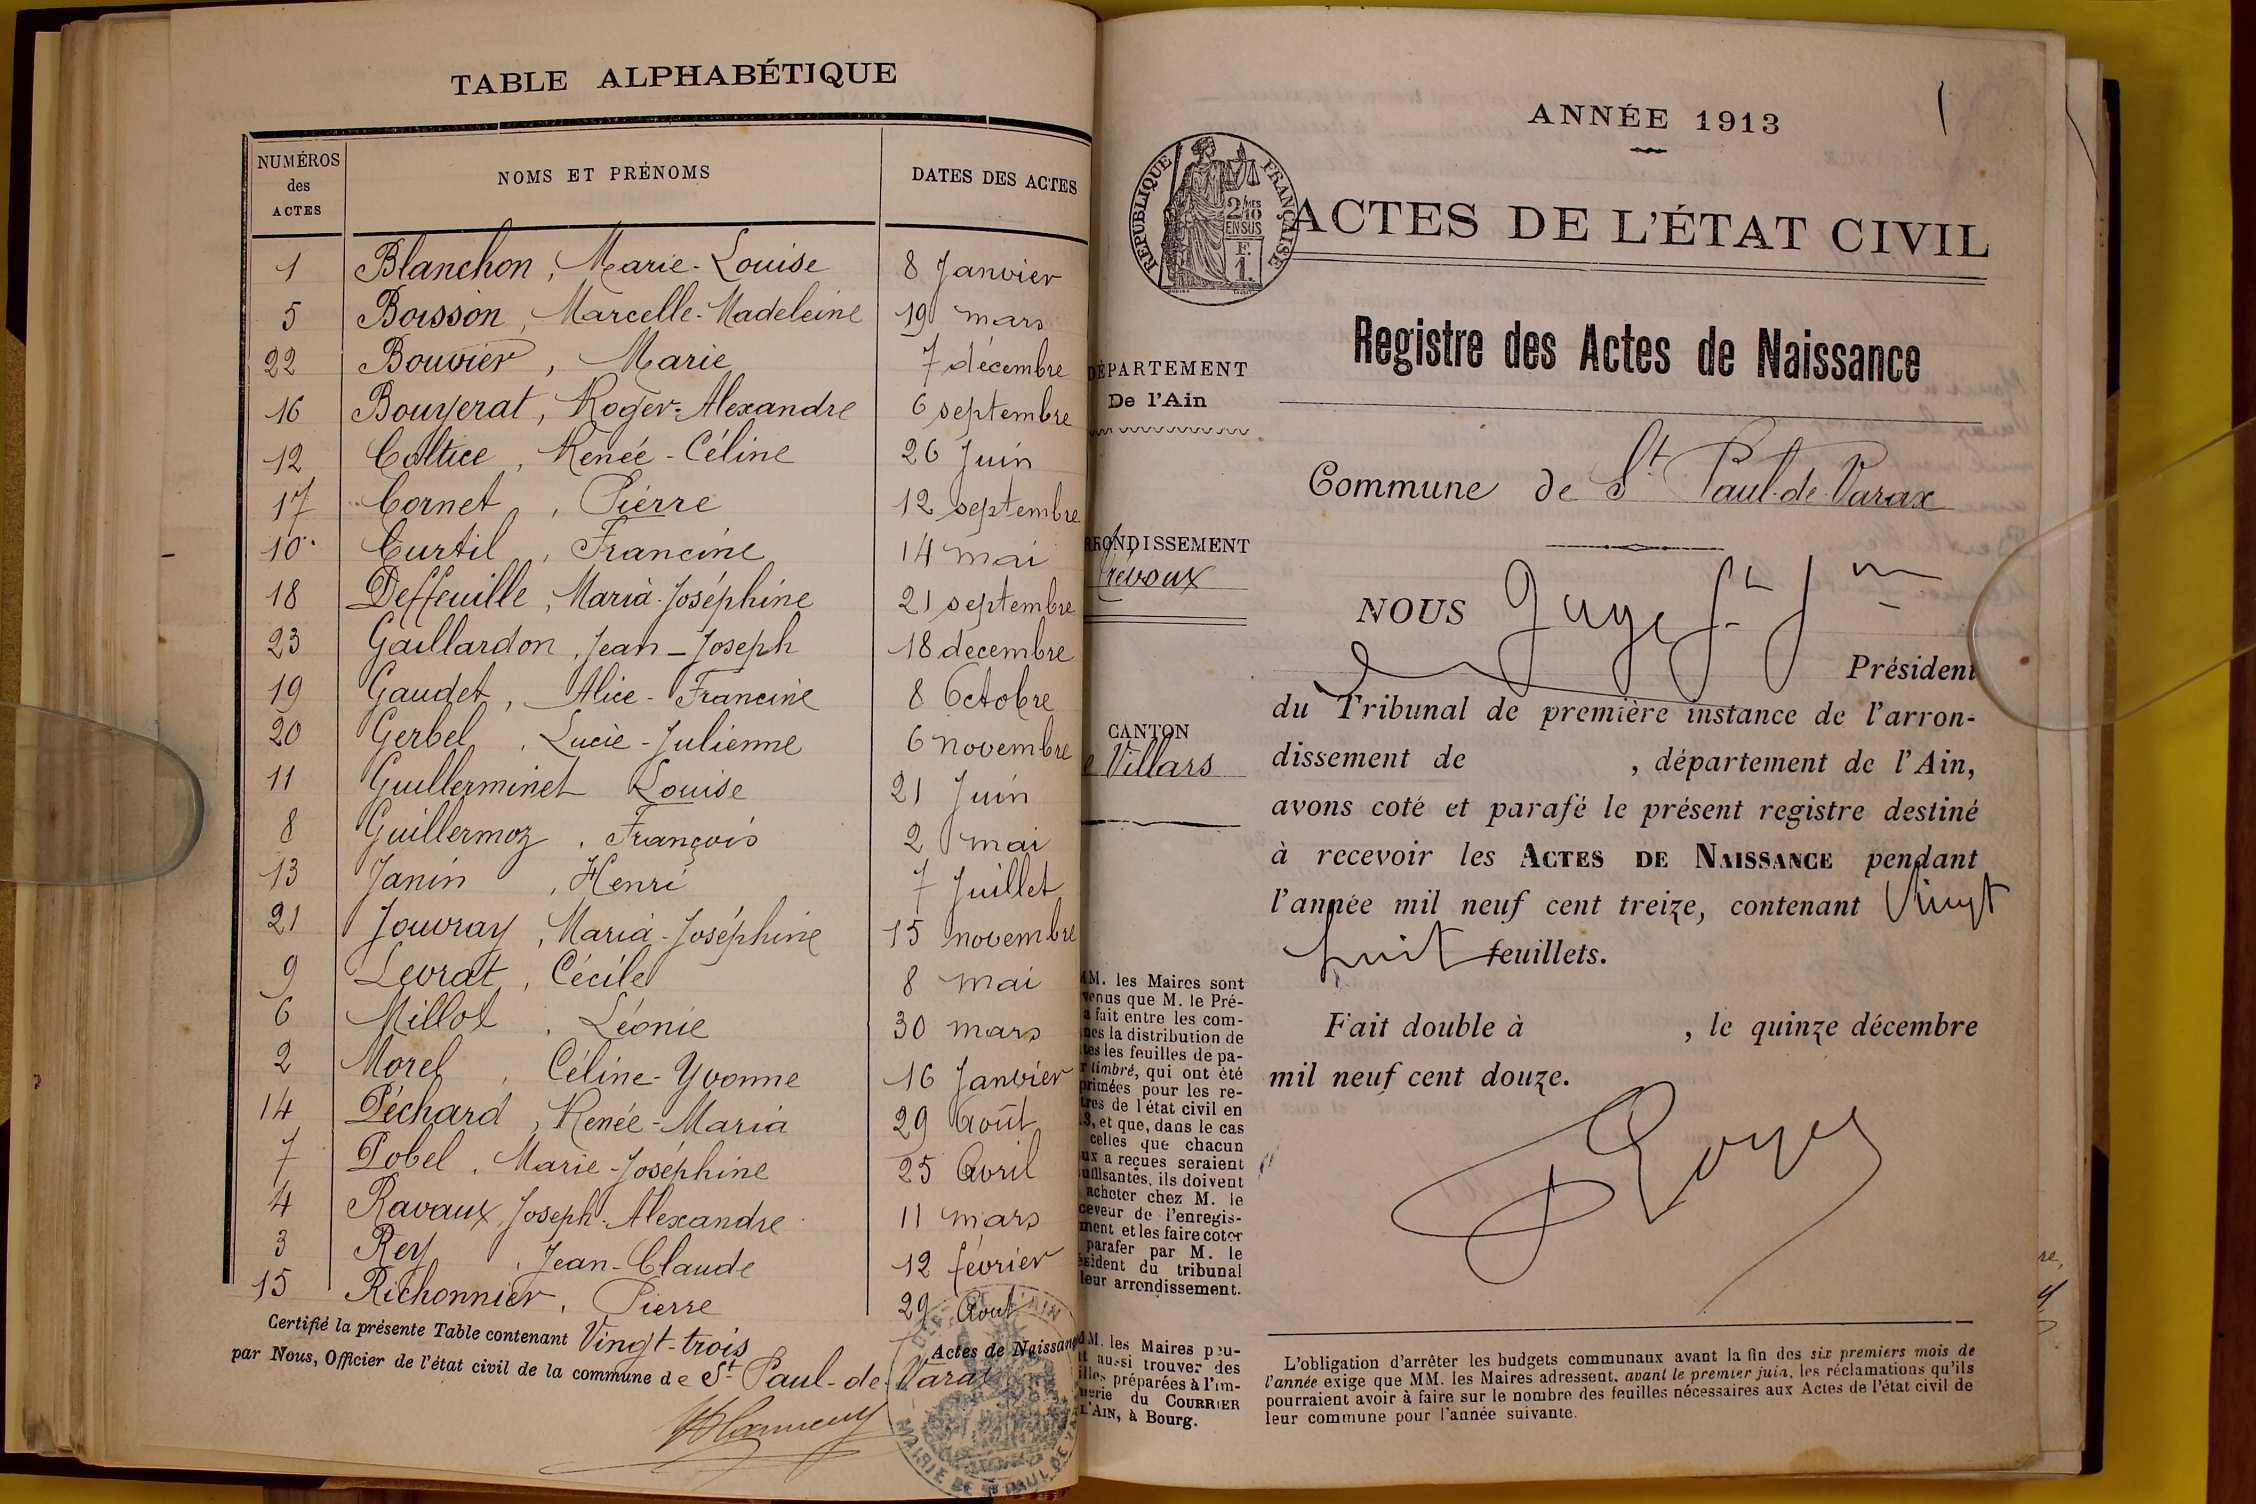 TABLE ALPHABÉTIQUE
NUMÉROS des ACTES NOMS ET PRÉNOMS DATES DES ACTES
1 Blanchon, Marie-Louise 8 Janvier
5 Boisson, Marcelle-Madeleine 19 mars
22 Bouvier, Marie 7 décembre
16 Bouyerat, Roger-Alexandre 6 septembre
12 Coltice, Renée-Céline 26 Juin
17 Cornet, Pierre 12 septembre
10 Curtil, Francine 14 mai
18 Deffeuille, Maria-Joséphine 21 septembre
23 Gaillardon, Jean-Joseph 18 decembre
19 Gaudet, Alice-Francine 8 Octobre
20 Gerbel, Lucie-Julienne 6 novembre
11 Guillerminet Louise 21 Juin
8 Guillermoz, François 2 mai
13 Janin, Henri 7 Juillet
21 Jouvray, Maria-Joséphine 15 novembre
9 Levrat, Cécile 8 mai
6 Millot, Léonie 30 mars
2 Morel, Céline-Yvonne 16 Janvier
14 Péchard, Renée-Maria 29 Août
7 Pobel, Marie-Joséphine 25 Avril
4 Ravaux, Joseph-Alexandre 11 mars
3 Rey, Jean-Claude 12 février
15 Richonnier, Pierre 29 Aout
Certifié la présente Table contenant Vingt-trois Actes de Naissance
par Nous, Officier de l'état civil de la commune de St Paul-de-Varax
MAIRIE DE ST PAUL DE VARAX
ANNÉE 1913
1
RÉPUBLIQUE FRANÇAISE
2/10MES
EN SUS
F.
1.
ACTES DE L'ÉTAT CIVIL
Registre des Actes de Naissance
DÉPARTEMENT
De l'Ain
Commune de St Paul-de-Varax
RRONDISSEMENT
Trévoux
CANTON
e Villars
NOUS
Président
du Tribunal de première instance de l'arron-
dissement de , département de l'Ain,
avons coté et parafé le présent registre destiné
à recevoir les ACTES DE NAISSANCE pendant
l'année mil neuf cent treize, contenant Vingt
huit feuillets.
Fait double à , le quinze décembre
mil neuf cent douze.
MM. les Maires sont
venus que M. le Pré-
a fait entre les com-
nes la distribution de
tes les feuilles de pa-
r timbré, qui ont été
primées pour les re-
tres de l'état civil en
3, et que, dans le cas
celles que chacun
ux a reçues seraient
uffisantes, ils doivent
acheter chez M. le
ceveur de l'enregis-
ment et les faire coter
parafer par M. le
ésident du tribunal
leur arrondissement.
MM. les Maires peu-
t aussi trouver des
illes préparées à l'im-
merie du COURRIER
L'AIN, à Bourg.
L'obligation d'arrêter les budgets communaux avant la fin des six premiers mois de
l'année exige que MM. les Maires adressent, avant le premier juin, les réclamations qu'ils
pourraient avoir à faire sur le nombre des feuilles nécessaires aux Actes de l'état civil de
leur commune pour l'année suivante.